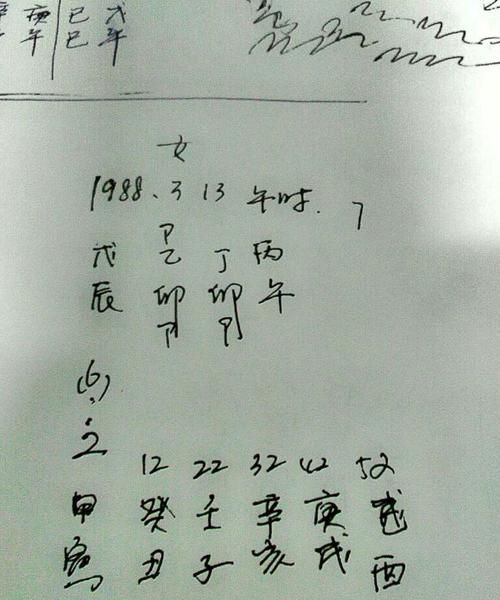 庚 己 戊
午 巳 午
女
1988.3 13 午时. 7
戊 乙 丁 丙
辰 卯 卯 午
(6)
2 12 22 32 42 52
甲 癸 壬 辛 庚
寅 丑 子 亥 戌 酉